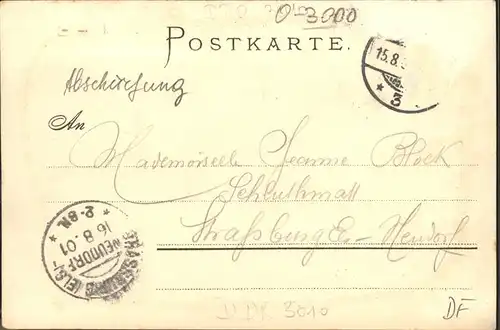 O-3000
POSTKARTE.
15.8.
Abschirfung
An
Mademoiselle Jeanne Block
Schluthmatt
Straßburg E- Neudorf
STRASSBURG (ELS)-
NEUDORF
16.8.01
* 2-8N. *
3010
DF